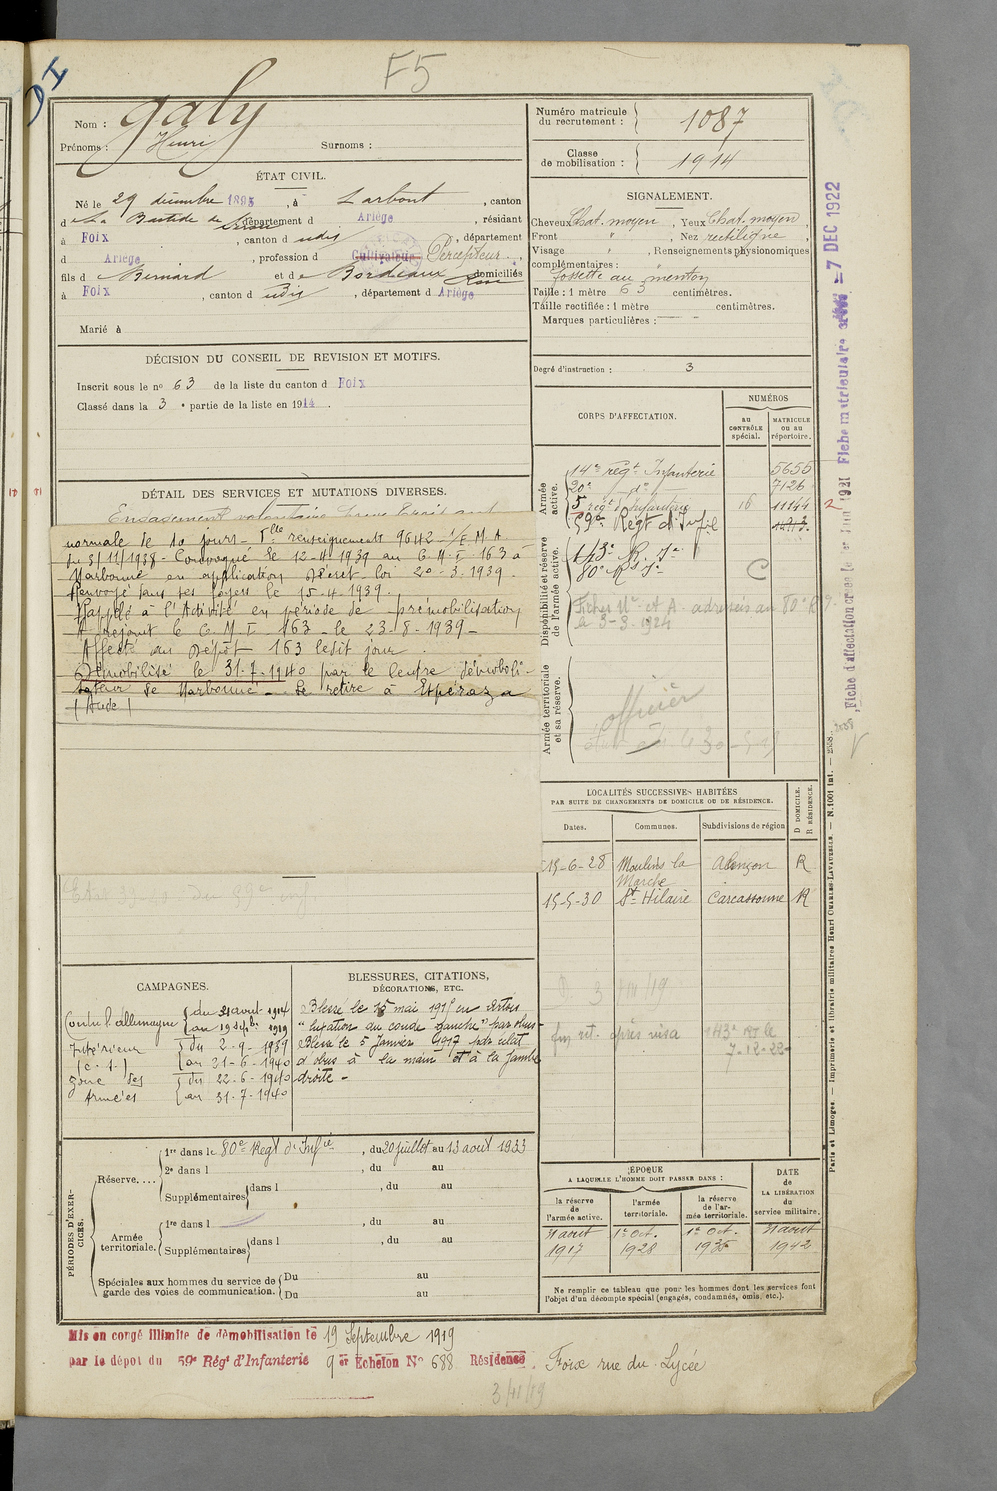 F5
Nom : Galy
Prénoms : Henri Surnoms :
Numéro matricule du recrutement : 1087
Classe de mobilisation : 1914
ÉTAT CIVIL.
Né le 29 décembre 1895, à Larbont, canton
d La Bastide de Sérou, département d Ariège, résidant
à Foix, canton d udis, département
d Ariège, profession d Cultivateur Percepteur.
fils d e Bernard et d e Bordeaux Rose domiciliés
à Foix, canton d udis, département d Ariège
Marié à
SIGNALEMENT.
Cheveux Chat. moyen, Yeux Chat. moyen,
Front " , Nez rectiligne,
Visage " , Renseignements physionomiques
complémentaires :
fossette au menton
Taille : 1 mètre 63 centimètres.
Taille rectifiée : 1 mètre centimètres.
Marques particulières :
Degré d'instruction : 3
DÉCISION DU CONSEIL DE REVISION ET MOTIFS.
Inscrit sous le nº 63 de la liste du canton d Foix
Classé dans la 3 e partie de la liste en 1914.
DÉTAIL DES SERVICES ET MUTATIONS DIVERSES.
Engagement volontaire
normale de 10 jours - Tlle renseignements 9642 - 1/E M A
du 3/11/1938 - Convoqué le 12-4-1939 au C.M.I. 163 à
Narbonne en application décret loi 20-3-1939.
Renvoyé dans ses foyers le 15-4-1939.
Rappelé à l'Activité en période de prémobilisation
A rejoint le C.M.I. 163 le 23-8-1939 -
Affecté au Dépôt 163 ledit jour.
Démobilisé le 31-7-1940 par le Centre démobili-
sateur de Narbonne - Se retire à Espéraza
(Aude)
CORPS D'AFFECTATION.
NUMÉROS
au CONTRÔLE spécial.
MATRICULE ou au répertoire.
Armée active.
14e régt Infanterie 5655
20e do 7126
5 régt Infanterie 16 11144
59e Régt d'Infie 1213
Disponibilité et réserve de l'armée active.
143e R. Ie
80e R Ie C
Fiches Me et A adressés au 80e R I
le 3-3-1924
Armée territoriale et sa réserve.
officier
LOCALITÉS SUCCESSIVES HABITÉES
PAR SUITE DE CHANGEMENTS DE DOMICILE OU DE RÉSIDENCE.
Dates. Communes. Subdivisions de région D DOMICILE. R RÉSIDENCE.
15-6-28 Moulins la Marche Alençon R
15-5-30 St Hilaire Carcassonne R
après visa 143e RI le
7-12-22
CAMPAGNES.
Contre l'allemagne { du 21 aout 1914
{ au 19 septbre 1919
Intérieur { du 2-9-1939
(C.S.) { au 21-6-1940
Zone des { du 22-6-1940
Armées { au 31-7-1940
BLESSURES, CITATIONS,
DÉCORATIONS, ETC.
Blessé le 15 mai 1915 en Artois
" luxation du coude gauche" par obus -
Blessé le 5 Janvier 1917 par éclat
d'obus à la main et à la jambe
droite -
PÉRIODES D'EXERCICES.
Réserve....
1re dans le 80e Régt d'Infie, du 20 juillet au 13 aout 1933
2e dans l , du au
Supplémentaires dans l , du au
Armée territoriale.
1re dans l , du au
Supplémentaires dans l , du au
Spéciales aux hommes du service de garde des voies de communication.
Du au
Du au
ÉPOQUE
A LAQUELLE L'HOMME DOIT PASSER DANS :
la réserve de l'armée active.
l'armée territoriale.
la réserve de l'armée territoriale.
DATE de LA LIBÉRATION du service militaire.
21 aout 1917
1er Oct. 1928
1er Oct. 1935
21 aout 1942
Ne remplir ce tableau que pour les hommes dont les services font
l'objet d'un décompte spécial (engagés, condamnés, omis, etc.).
Mis en congé illimité de démobilisation le 19 Septembre 1919
par le dépôt du 59e Régt d'Infanterie 9 er Echelon No 688 Résidence. Foix rue du Lycée
Fiche matriculaire
7 DEC 1922
Paris et Limoges. — Imprimerie et librairie militaires Henri CHARLES-LAVAUZELLE. — N. 1001 Int. — 2558.